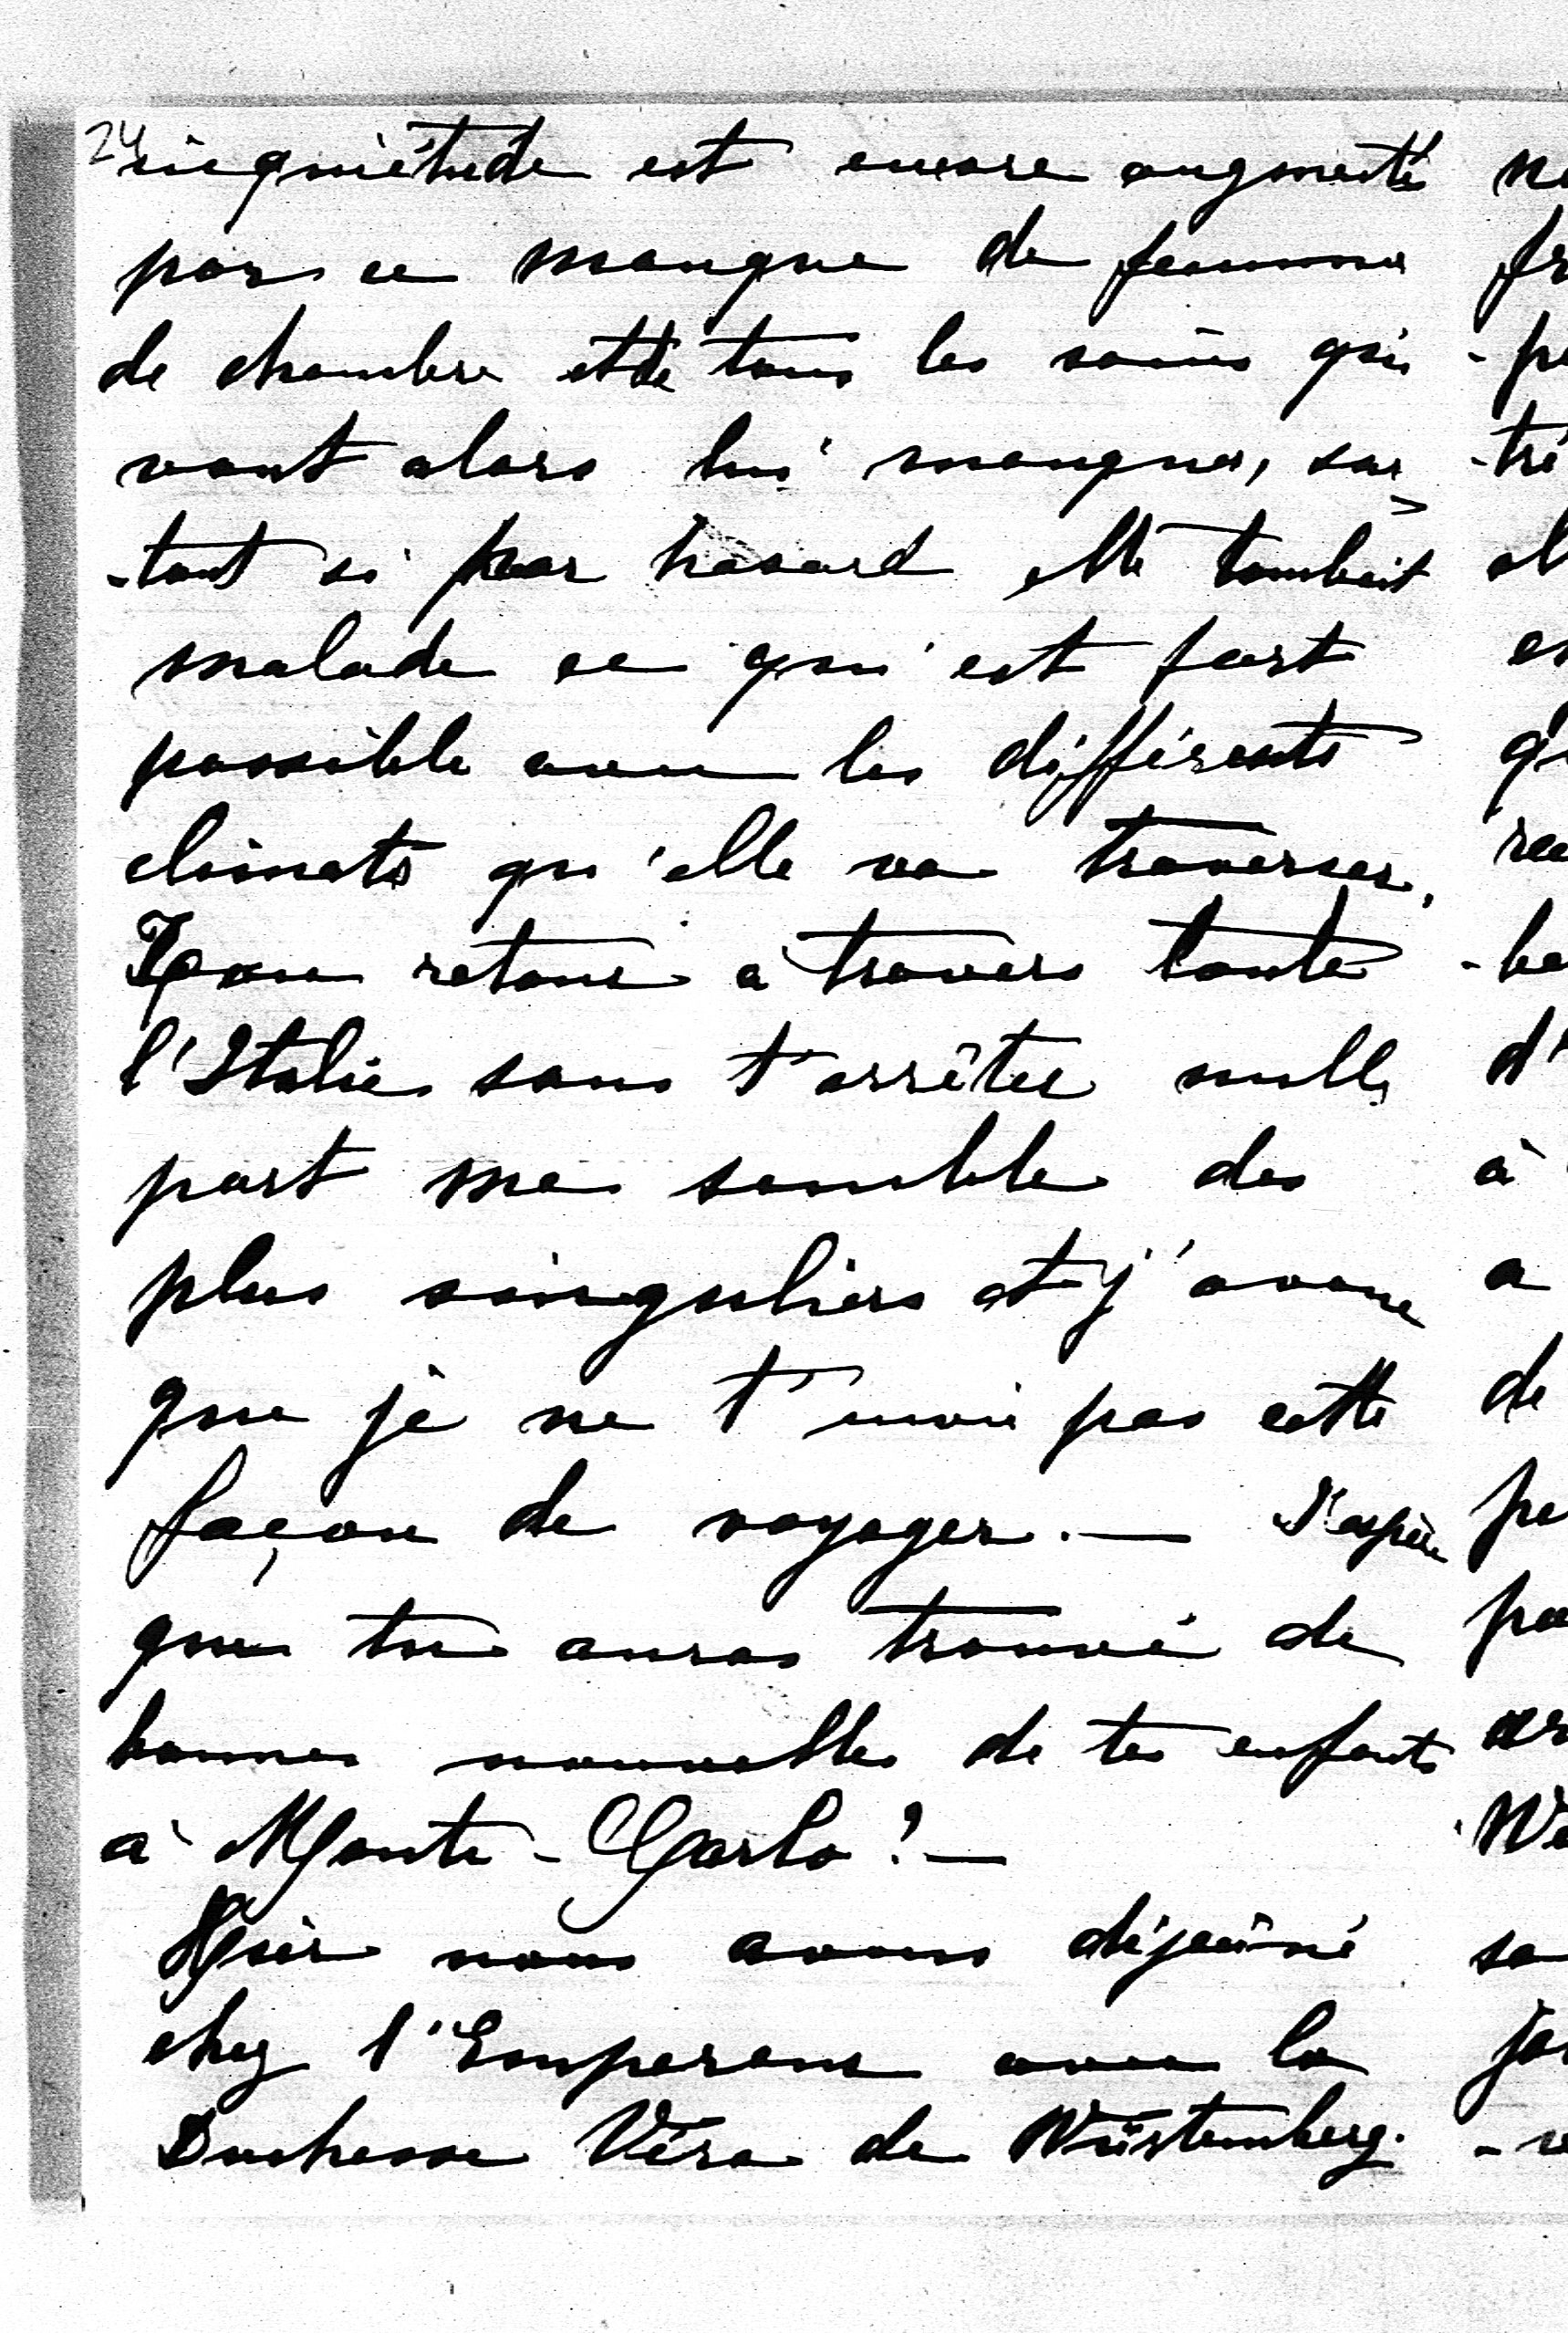 24
inquiétude est encore augmenté
par ce manque de femme
de chambre et de tous les soins qui
vont alors lui manquer, sur
-tout si par hasard elle tombait
malade ce qui est fort
possible avec les différents
climats qu'elle va traverser.
Ton retour à travers toute
l'Italie sans t'arrêter nulle
part me semble des
plus singuliers et j'avoue
que je ne t'envie pas cette
façon de voyager. — J'espère
que tu auras trouvé de
bonnes nouvelles de tes enfants
à Monte-Carlo? —
Hier nous avons déjeûné
chez l'Empereur avec la
Duchesse Véra de Würtemberg.